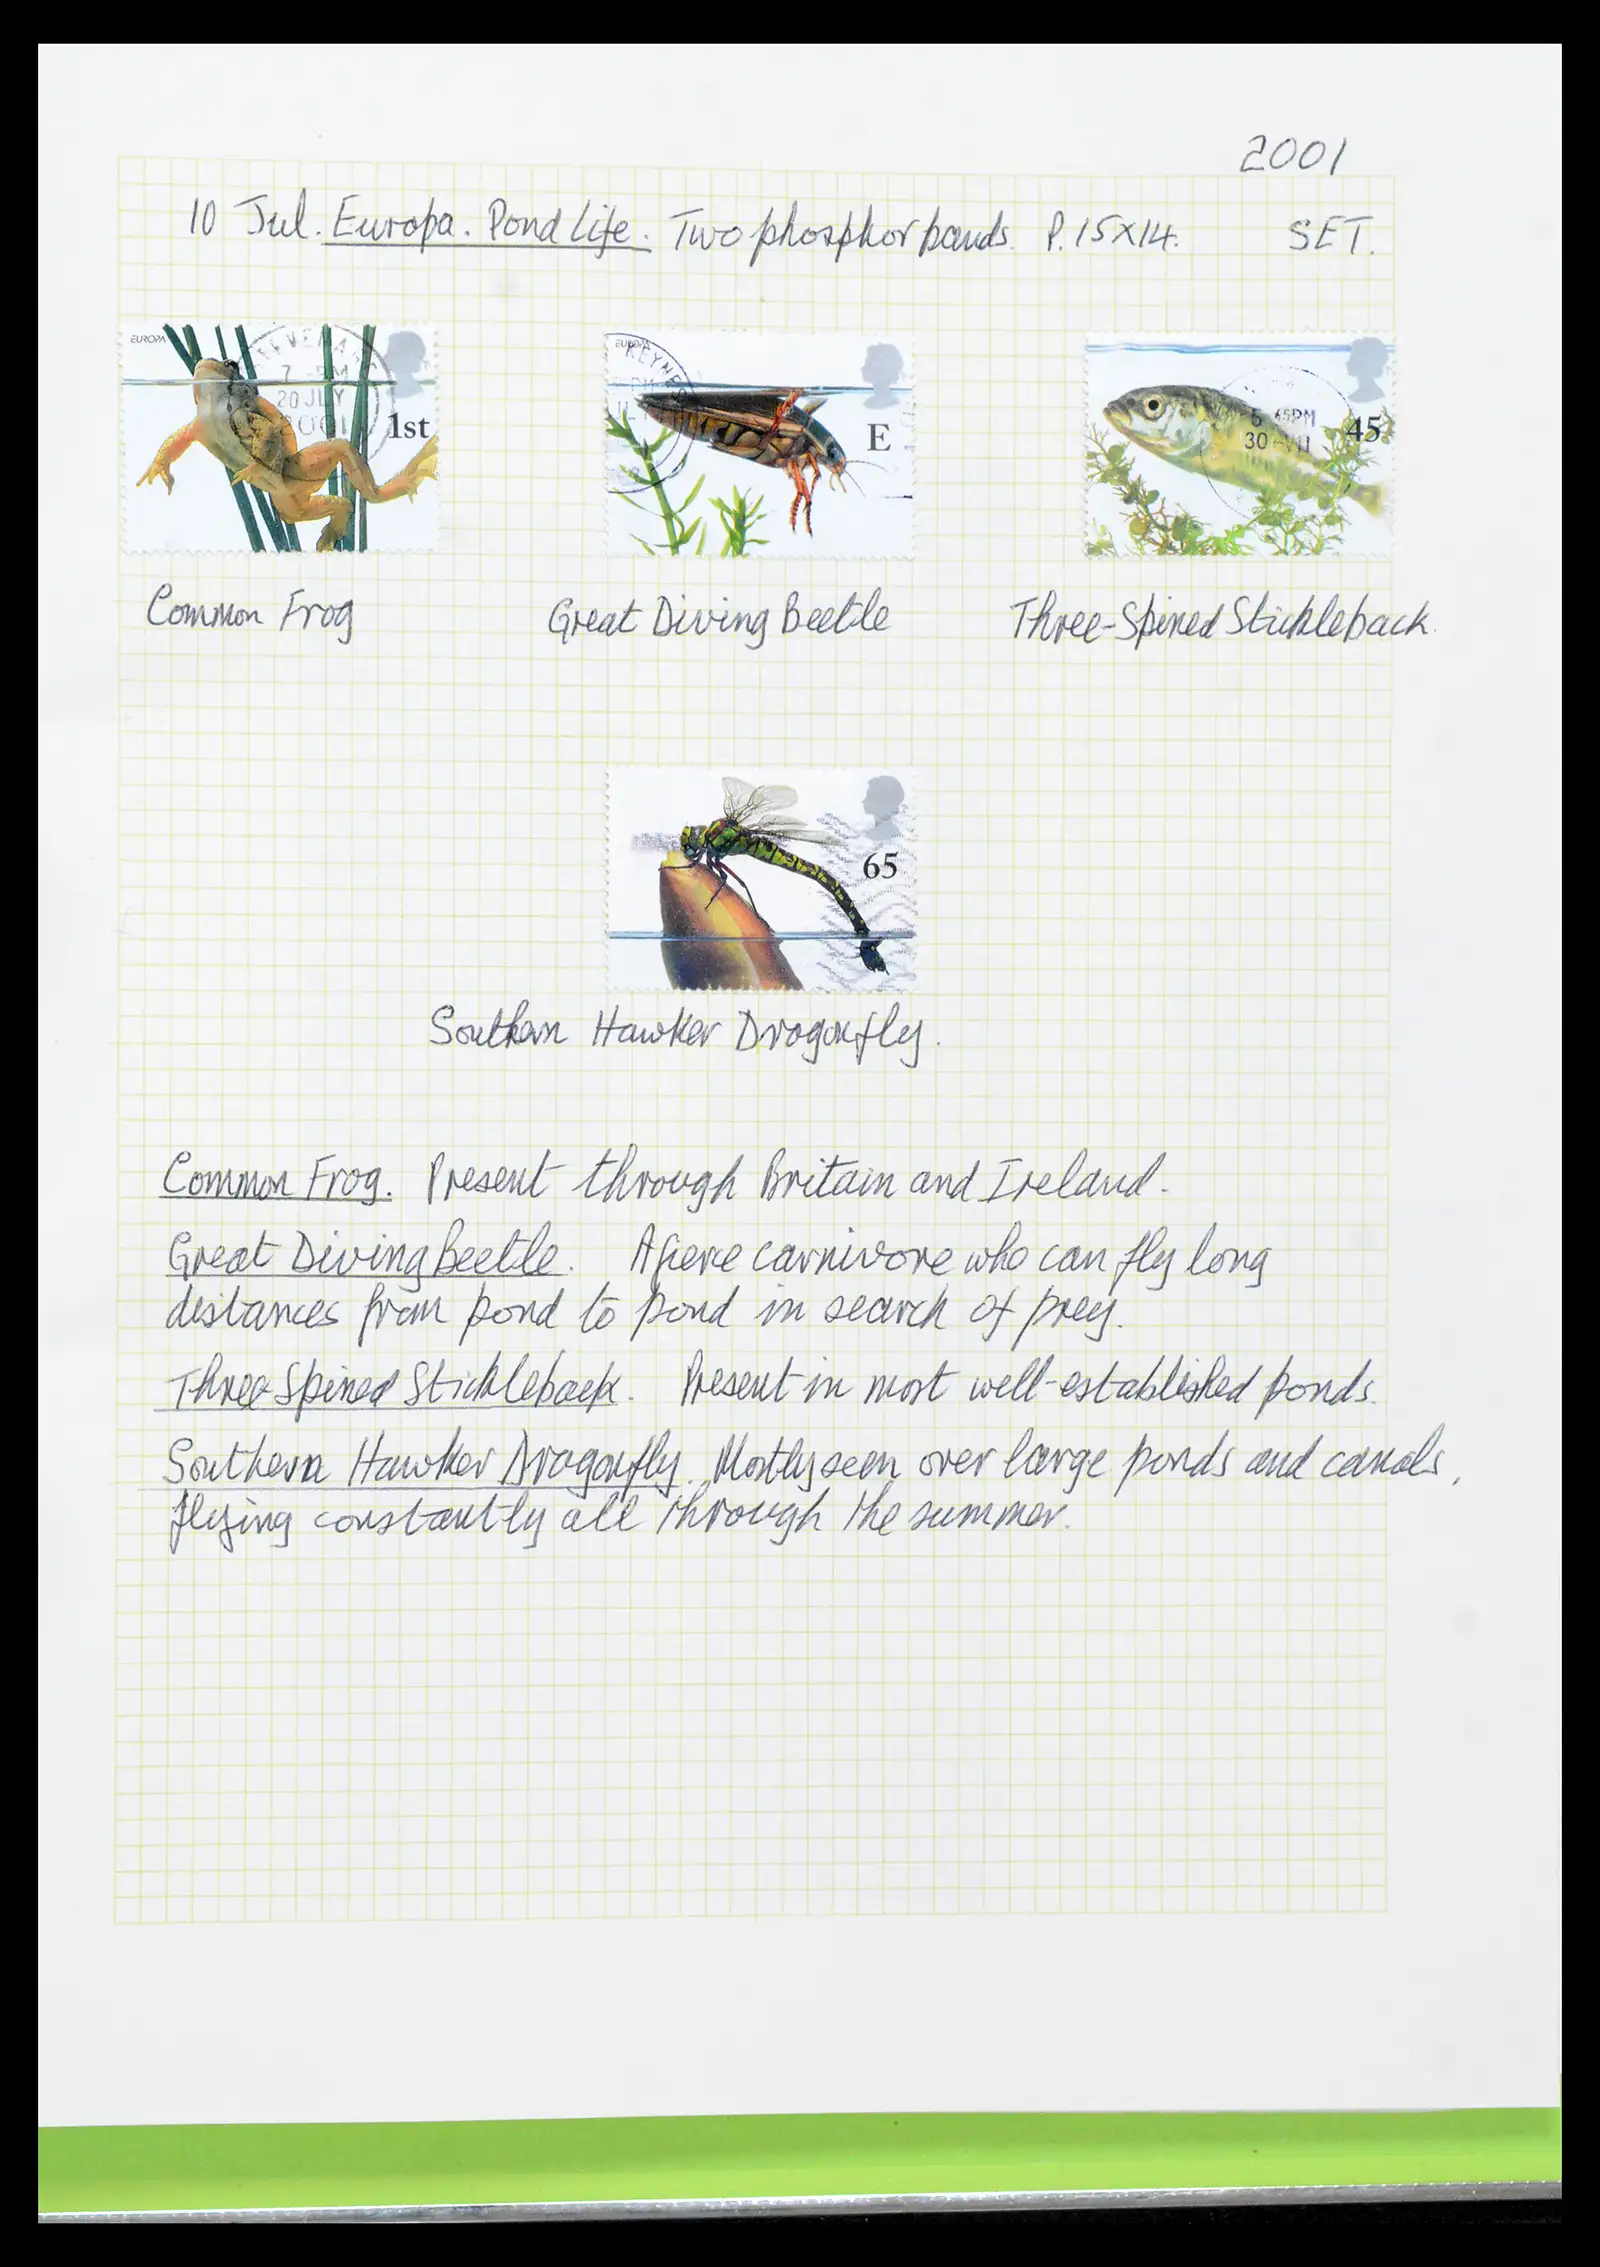 2001
10 Jul. Europa. Pond Life. Two phosphor bands. P.15X14. SET.
EUROPA
7 - PM
20 JLY
2001
1st
EUROPA
KEYNES
E
5 45PM
30 VII
45
Common Frog
Great Diving Beetle
Three-Spined Stickleback.
65
Southern Hawker Dragonfly.
Common Frog. Present through Britain and Ireland.
Great Diving Beetle. A fierce carnivore who can fly long
distances from pond to pond in search of prey.
Three Spined Stickleback. Present in most well-established ponds.
Southern Hawker Dragonfly. Mostly seen over large ponds and canals,
flying constantly all through the summer.